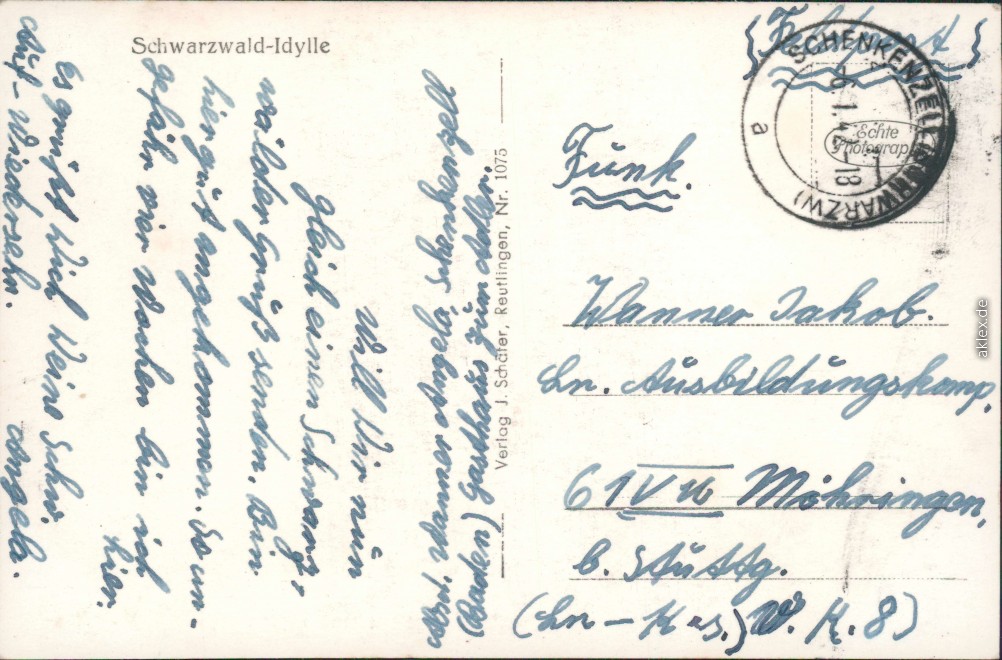 Schwarzwald-Idylle
Abs. Wanner Angela Schenkenzell
(Baden) Gasthaus zum Adler.
Will Dir nun
gleich einen Schwarz-
wälder Gruß senden. Bin
hier gut angekommen. So un-
gefähr vier Wochen bin ich
hier.
Es grüßt Dich Deine Schw.
Auf-Wiedersehn. Angela.
Verlag J. Schäfer, Reutlingen, Nr. 1075
(Feldpost)
SCHENKENZELL (SCHWARZW)
a
Echte
Photographie
Funk.
Wanner Jakob.
Ln. Ausbildungskomp.
61 VII Möhringen,
b. Stuttg.
(Ln-Kas.) W.K.8)
aklex.de